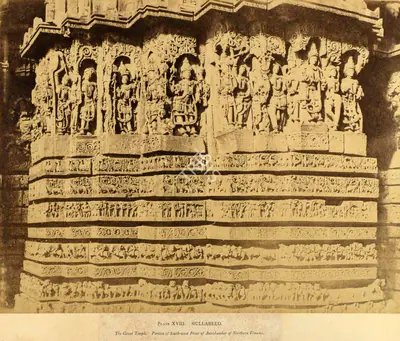 PLATE XVIII. HULLABEED.
The Great Temple. Portion of South-west Front of Basement of Northern Vimana.